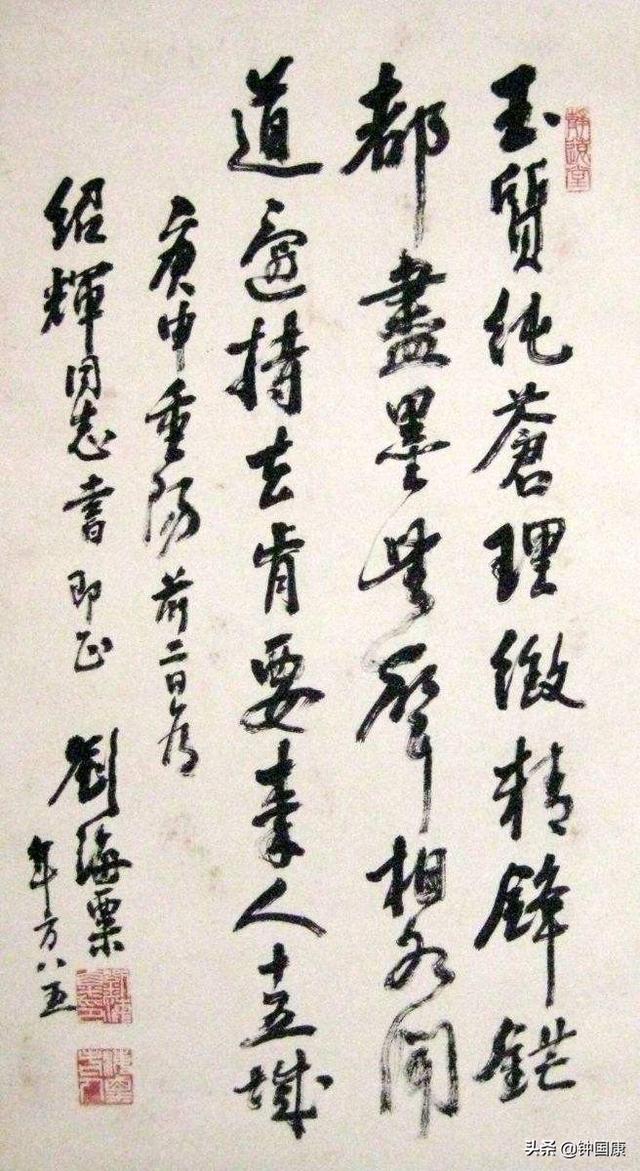 玉質純蒼理緻精鋒鋩
都盡墨無聲相如聞
道還持去肯要秦人十五城
庚申重陽前二日为
紹輝同志書即正
劉海粟
年方八五
头条 @钟国康